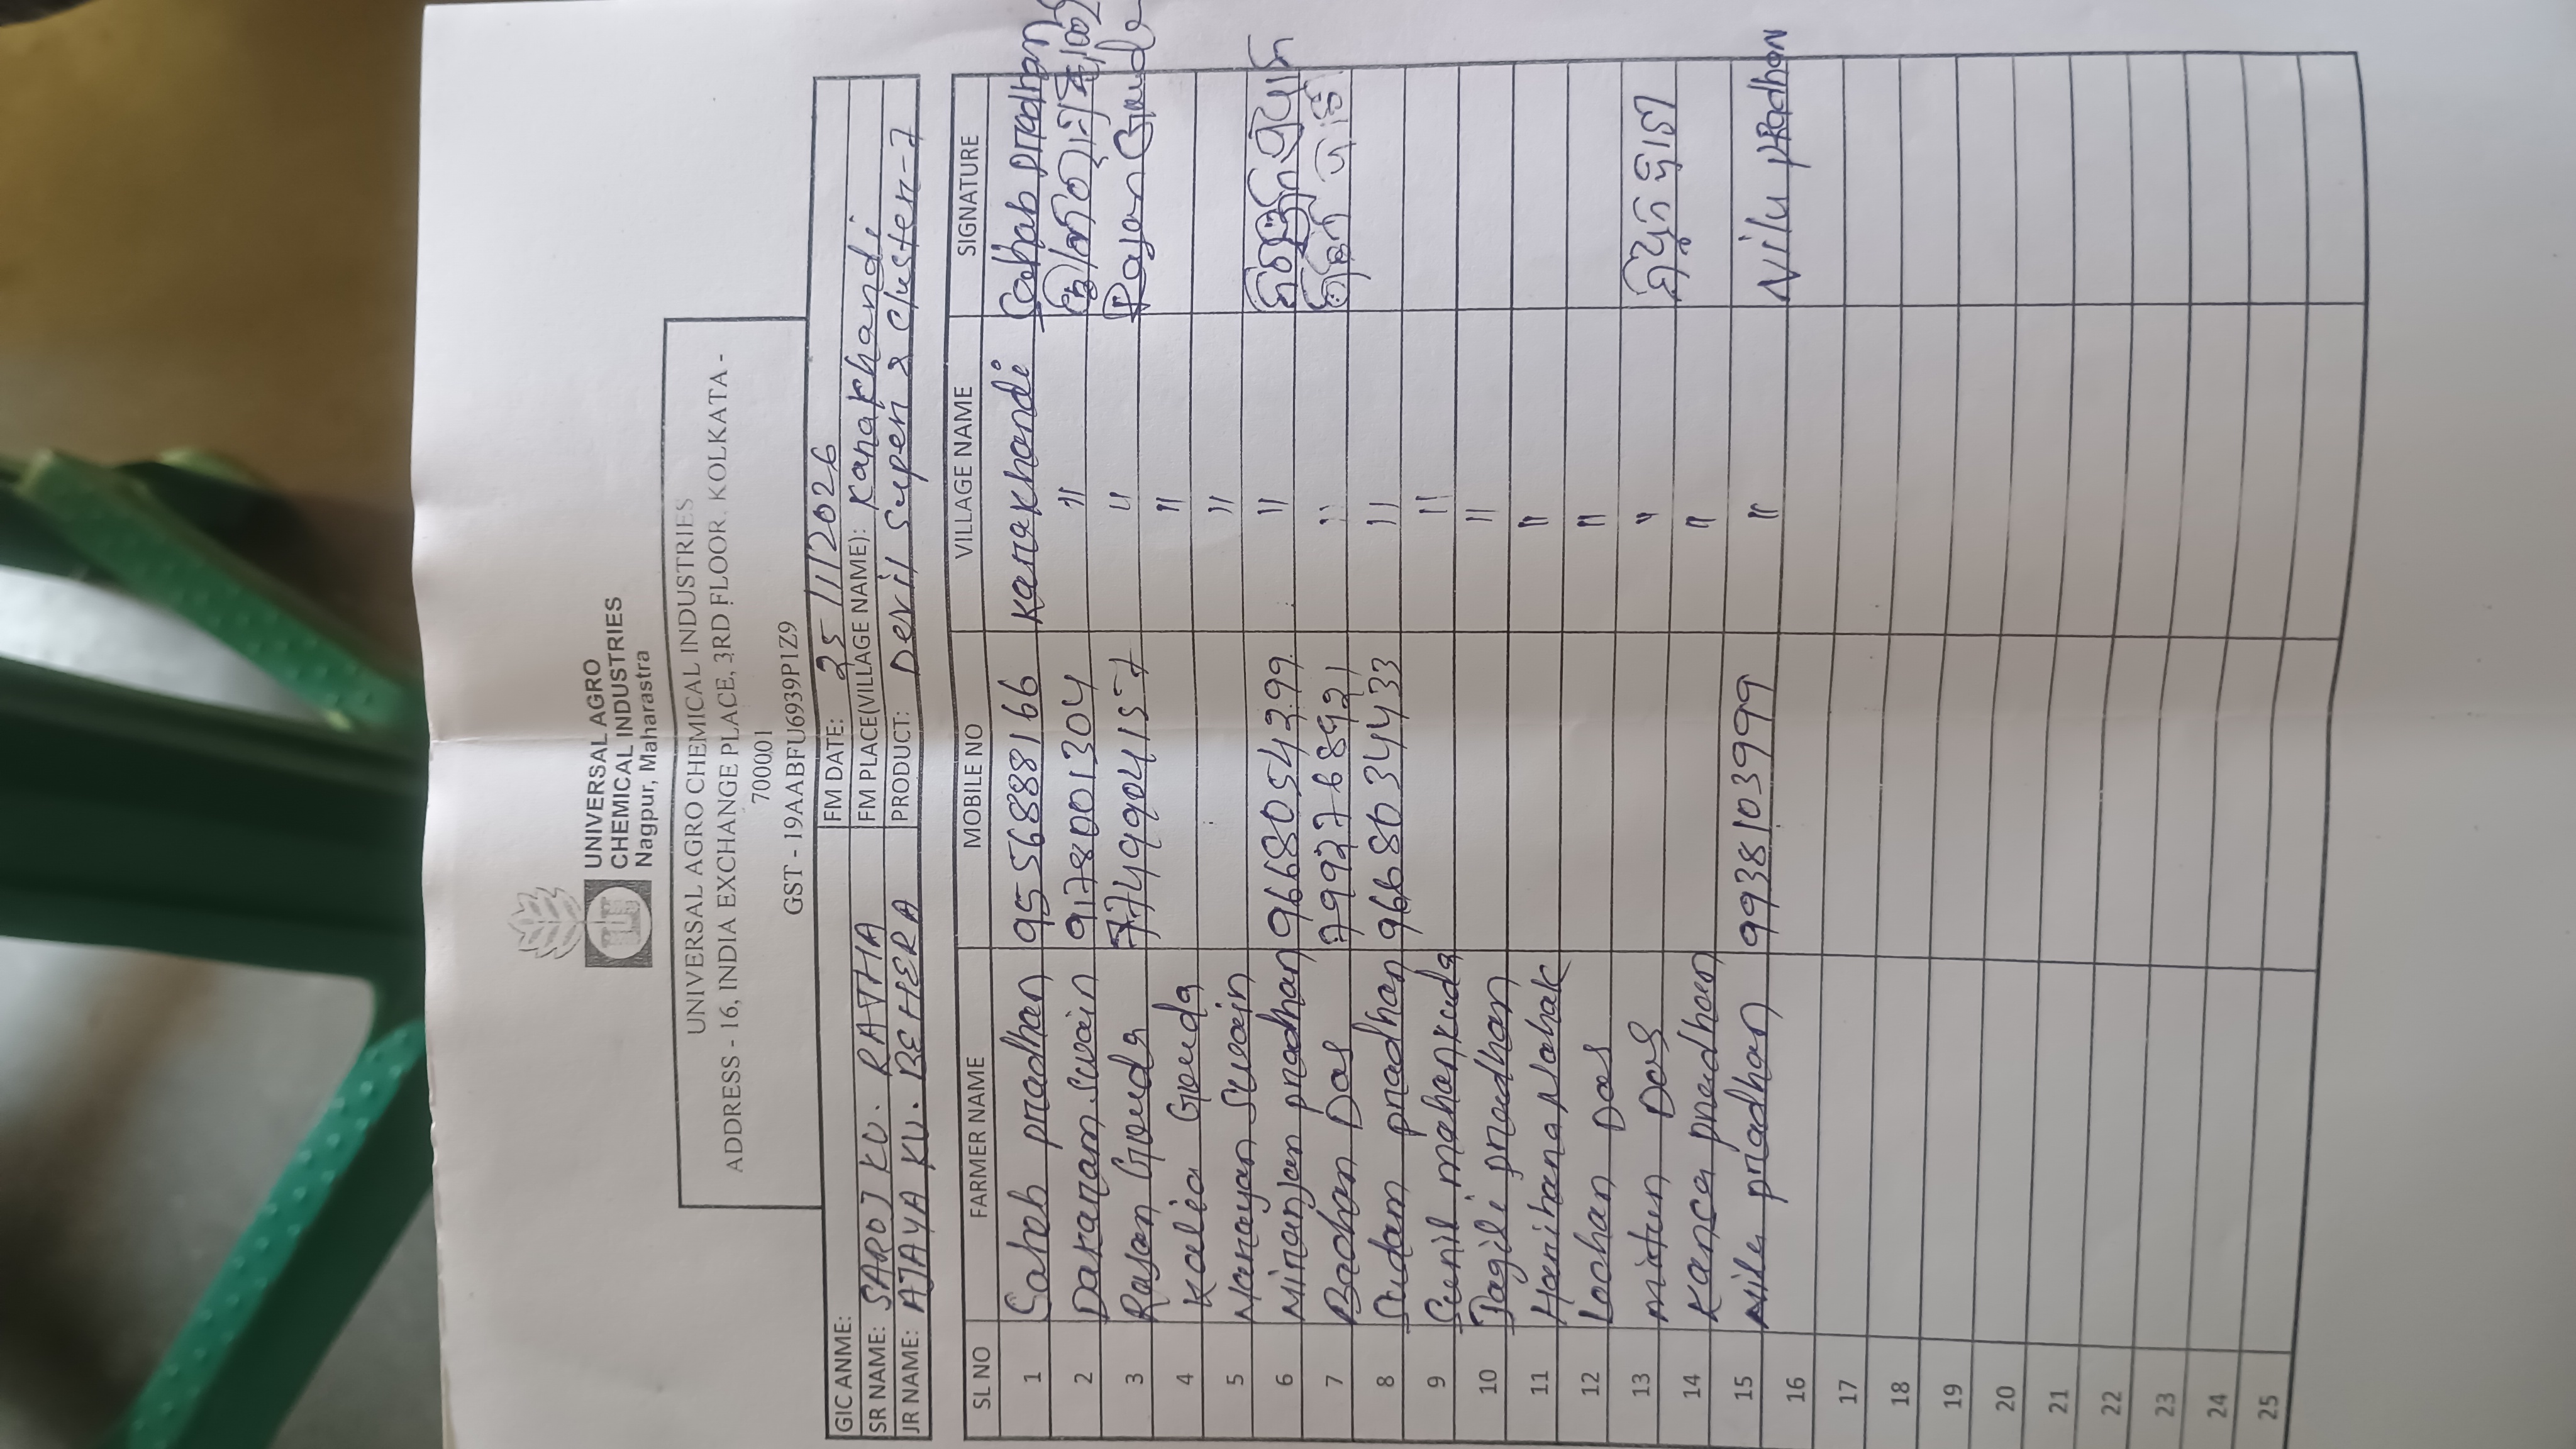 UNIVERSAL AGRO
CHEMICAL INDUSTRIES
Nagpur, Maharastra
UNIVERSAL AGRO CHEMICAL INDUSTRIES
ADDRESS - 16, INDIA EXCHANGE PLACE, 3RD FLOOR, KOLKATA -
700001
GST - 19AABFU6939P1Z9
GIC ANME: FM DATE: 25/1/2026
SR NAME: SAROJ KU. RATHA FM PLACE(VILLAGE NAME): Kanakhandi
JR NAME: AJAYA KU. BEHERA PRODUCT: Devil Super & cluster-7
SL NO FARMER NAME MOBILE NO VILLAGE NAME SIGNATURE
1 Saheb pradhan 9556888166 Kanakhandi Sahab pradhan
2 Dakaram Swain 9178001304 "
3 Rajan Gouda 7749904157 " Rajan Gouda
4 Kalia Gouda "
5 Narayan Swain "
6 Niranjan pradhan 9668054299 "
7 Badhan Das 7992768921 "
8 Sudam pradhan 9668034433 "
9 Sunil maharkuda "
10 Jagili pradhan "
11 Harihara Nahak "
12 Lochan Das "
13 mitun Das "
14 Kanca pradhan "
15 Nilu pradhan 9938103999 " Nilu pradhan
16
17
18
19
20
21
22
23
24
25